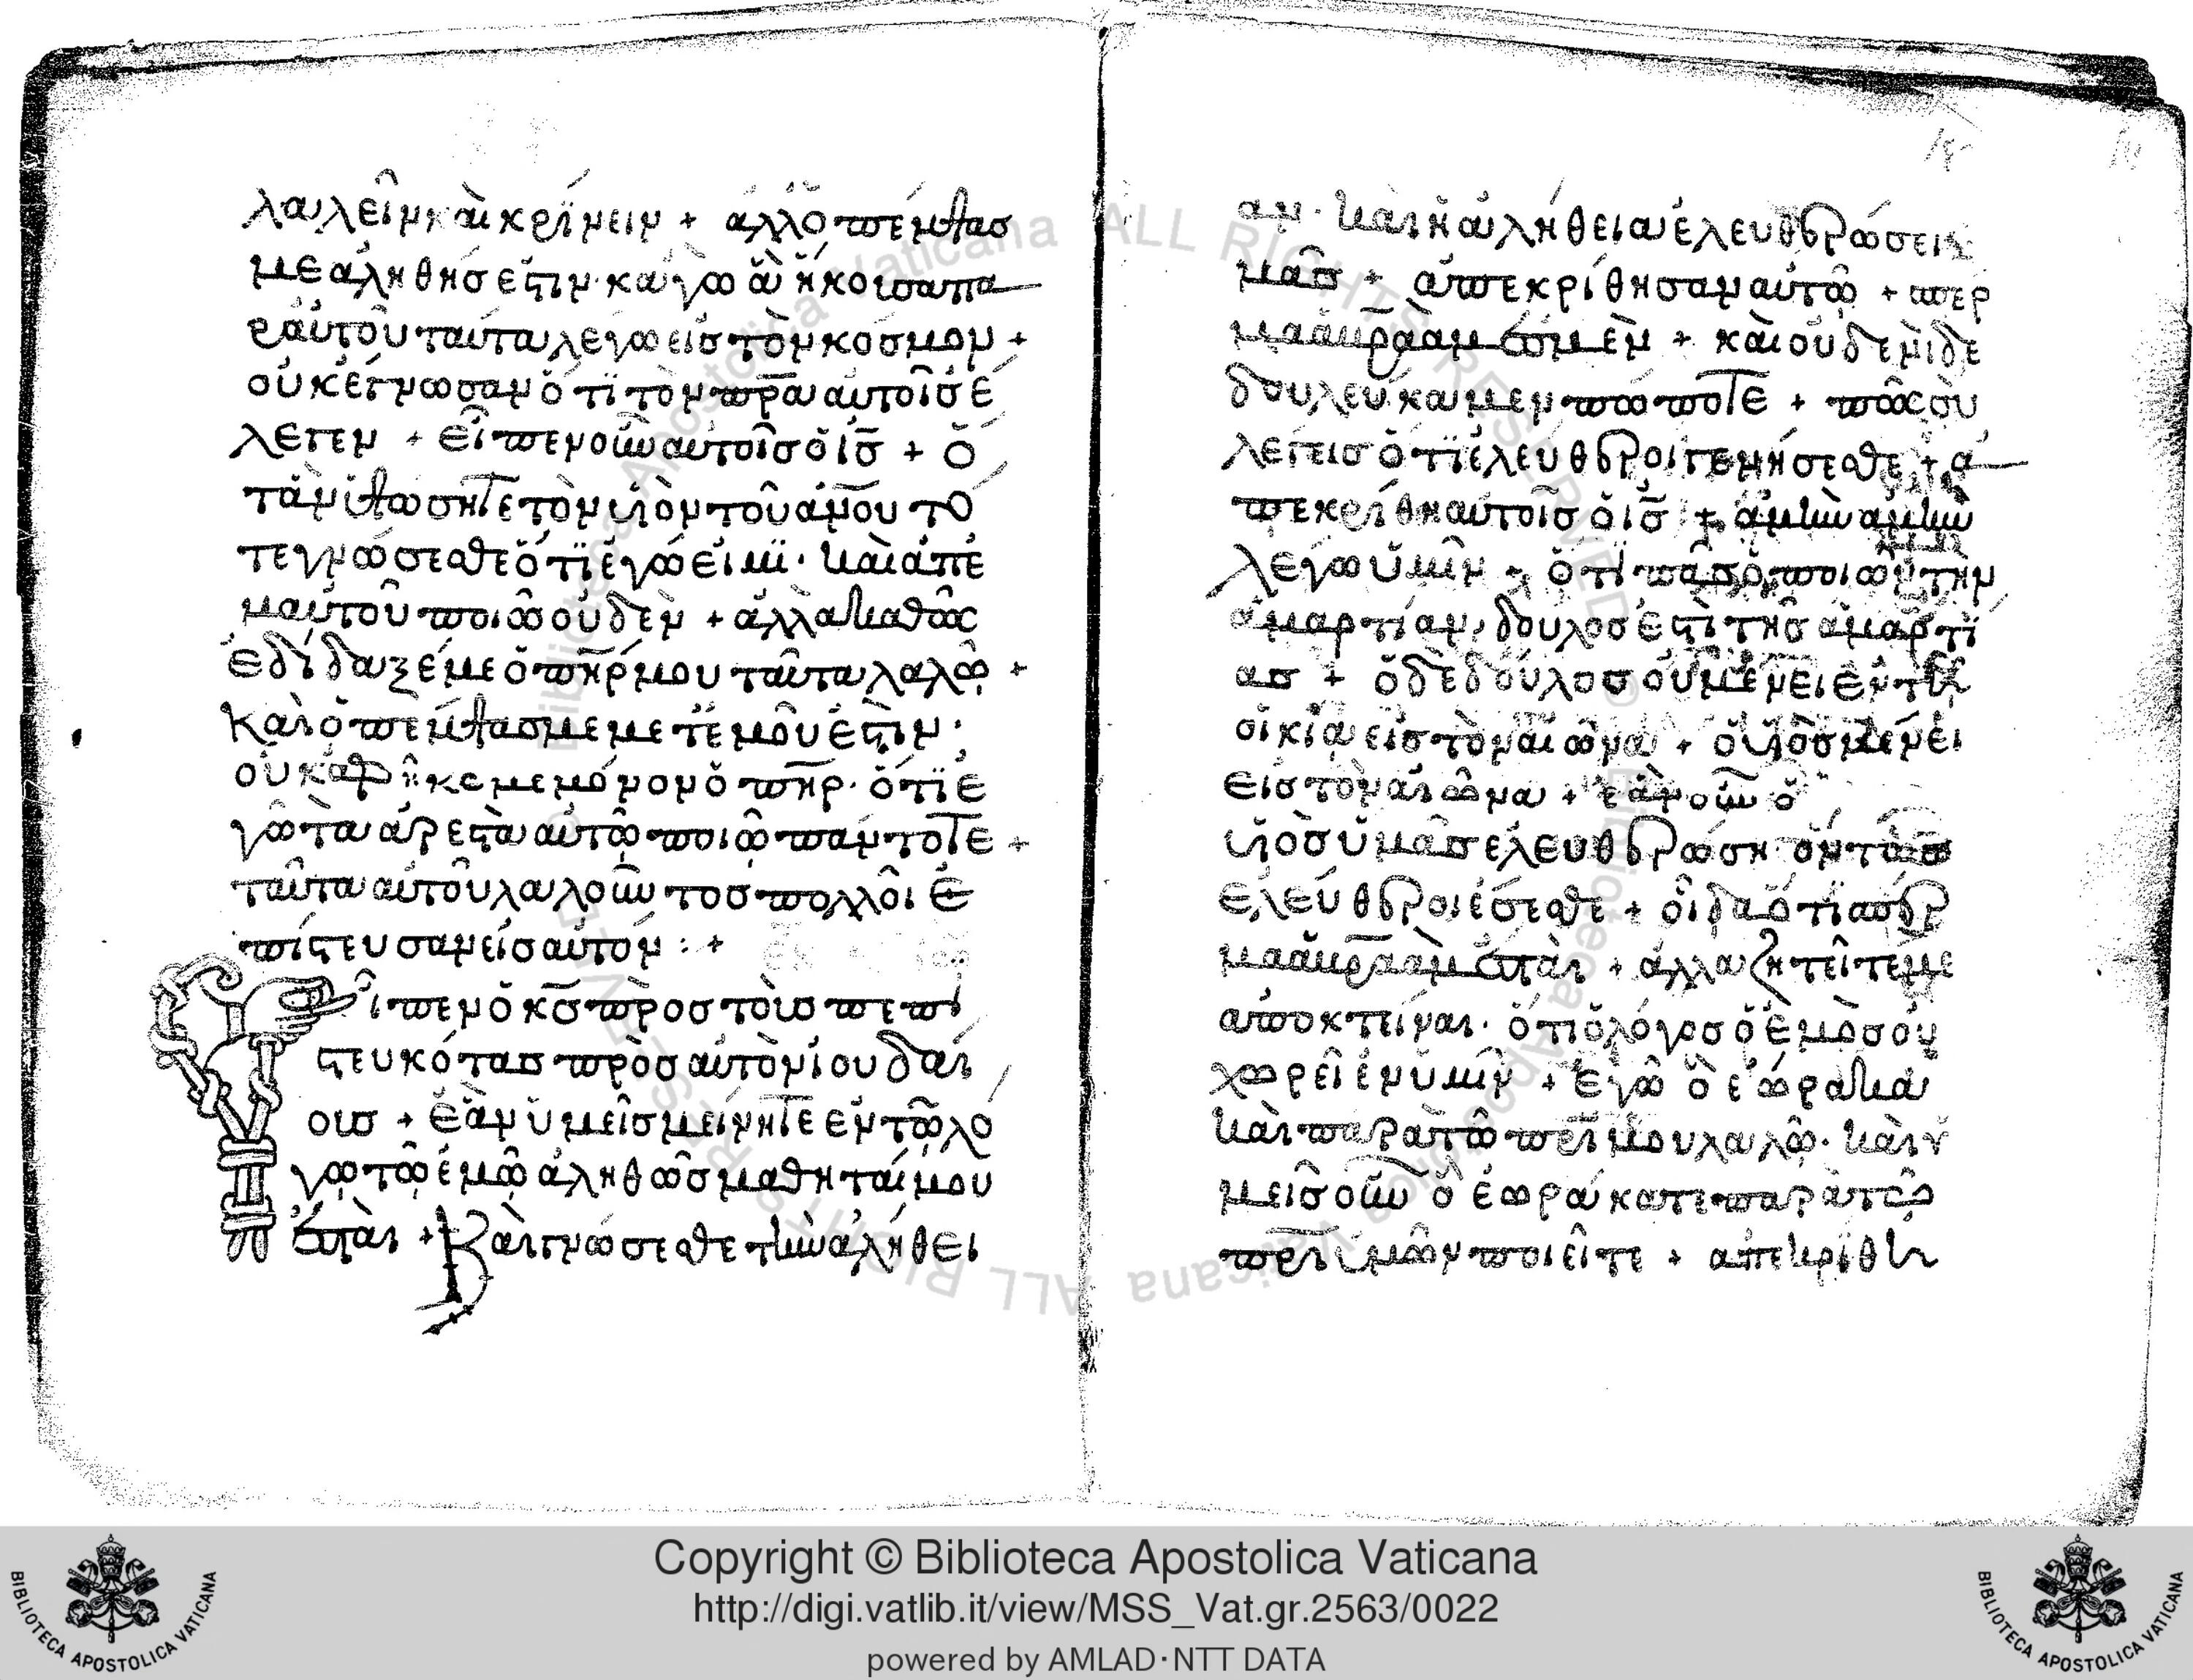 λαλεῖν καὶ κρίνειν + ἀλλ ὁ πέμψασ
με ἀληθήσ ἐστιν· κἀγὼ ἃ ἤκουσα πα
ρ αὐτοῦ ταῦτα λέγω εἰσ τὸν κόσμον +
οὐκ ἔγνωσαν ὅτι τὸν πρα αὐτοῖσ ἔ
λεγεν + εἶπεν οὖν αὐτοῖσ ὁ ισ + ὅ
τἀν ὑψώσητε τὸν υἱὸν τοῦ ανου τό
τε γνώσεσθε ὅτι ἐγώ εἰμι· καὶ ἀπ ἐ
μαυτοῦ ποιῶ οὐδὲν + ἀλλὰ καθὼς
ἐδίδαξέ με ὁ πηρ μου ταῦτα λαλῶ +
καὶ ὁ πέμψασ με μετ ἐμοῦ ἐστιν·
οὐκ ἀφῆκέ με μόνον ὁ πηρ· ὅτι ἐ
γὼ τὰ ἀρεστὰ αὐτῶ ποιῶ πάντοτε +
ταῦτα αὐτοῦ λαλοῦντοσ πολλοὶ ἐ
πίστευσαν εἰσ αὐτόν : +
Εἶπεν ὁ κσ πρὸσ τοὺσ πεπι
στευκότασ πρὸσ αὐτὸν ἰουδαί
ουσ + ἐὰν ὑμεῖσ μείνητε ἐν τῶ λό
γω τῶ ἐμῶ ἀληθῶσ μαθηταί μου
ἐσταὶ + Καὶ γνώσεσθε τὴν ἀλήθει
αν· καὶ ἡ ἀλήθεια ἐλευθερώσει ὑ
μᾶσ + ἀπεκρίθησαν αὐτῶ + σπερ
μα ἀβραὰμ ἐσμὲν + καὶ οὐδενὶ δε
δουλεύκαμεν πώποτε + πῶς σὺ
λέγεισ ὅτι ἐλεύθεροι γενήσεσθε + ἀ
πεκρίθη αὐτοῖσ ὁ ισ + ἀμὴν ἀμὴν
λέγω ὑμῖν + ὅτι πᾶσ ὁ ποιῶν τὴν
ἁμαρτίαν, δοῦλοσ ἐστὶ τῆσ ἁμαρτί
ασ + ὁ δὲ δοῦλοσ οὐ μένει ἐν τῆ
οἰκία εἰσ τὸν αἰῶνα + ὁ υἱὸσ μένει
εἰσ τὸν αἰῶνα + ἐὰν οὖν ὁ
υἱὸσ ὑμᾶσ ἐλευθερώση ὄντωσ
ἐλεύθεροι ἔσεσθε + οἶδα ὅτι σπερ
μα ἀβραὰμ ἐσταὶ + ἀλλὰ ζητεῖτέ με
ἀποκτεῖναι· ὅτι ὁ λόγοσ ὁ ἐμὸσ οὐ
χωρεῖ ἐν ὑμῖν + ἐγὼ ὃ ἑώρακα
καὶ παρὰ τῶ πρι μου λαλῶ· καὶ ὑ
μεῖσ οὖν ὃ ἑωράκατε παρὰ τῶ
πρι ὑμῶν ποιεῖτε + ἀπεκρίθη
Copyright © Biblioteca Apostolica Vaticana
http://digi.vatlib.it/view/MSS_Vat.gr.2563/0022
powered by AMLAD·NTT DATA
BIBLIOTECA APOSTOLICA VATICANA
BIBLIOTECA APOSTOLICA VATICANA